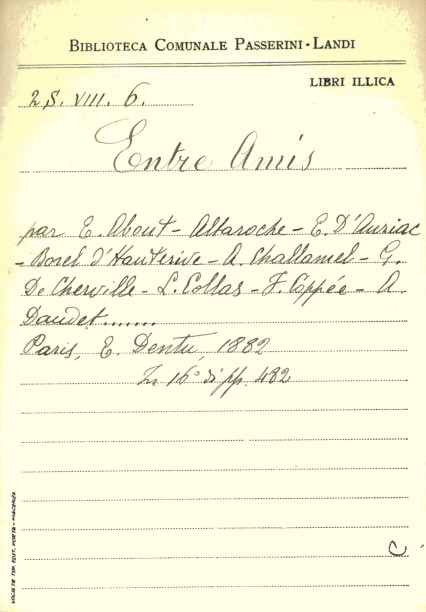 BIBLIOTECA COMUNALE PASSERINI-LANDI
LIBRI ILLICA
2 S. VIII. 6.
Entre Amis
par E. About - Altaroche - E. D'Auriac
- Borel d'Hauterive - A. Challamel - G.
De Cherville - L. Collas - F. Coppée - A.
Daudet.......
Paris, E. Dentu, 1882
In 16° di pp. 482
C
SOCIETÀ TIP. EDIT. PORTA - PIACENZA